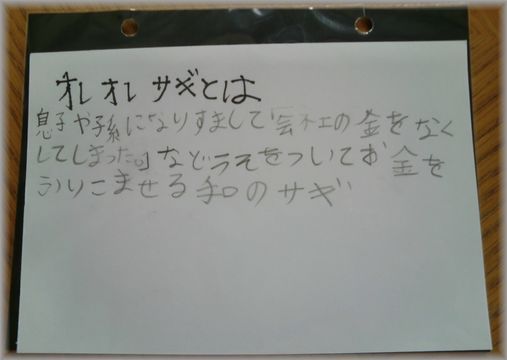 オレオレサギとは
息子や孫になりすまして「会社の金をなく
してしまった。」などうそをついてお金を
ふりこませる和のサギ